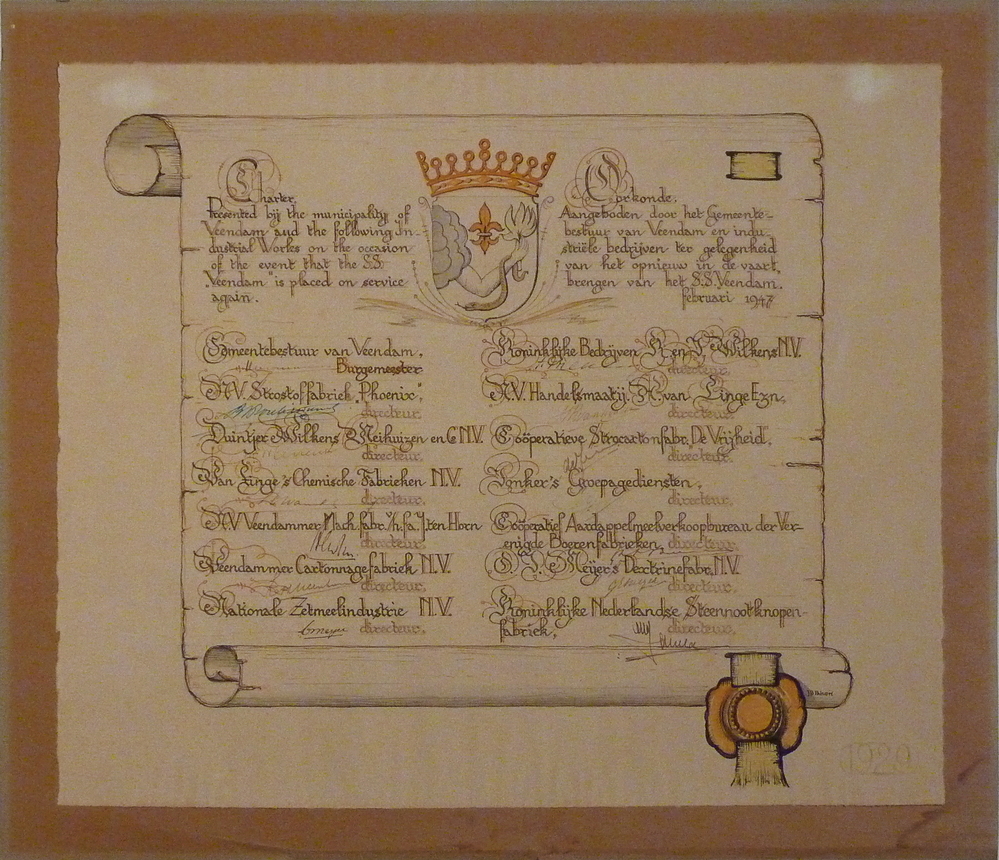 Charter.
Presented bij the municipality of
Veendam and the following In-
dustrial Works on the occasion
of the event that the S.S.
„Veendam" is placed on service
again.
Oorkonde.
Aangeboden door het Gemeente-
bestuur van Veendam en indu-
striële bedrijven ter gelegenheid
van het opnieuw in de vaart
brengen van het S.S. Veendam.
februari 1947
Gemeentebestuur van Veendam,
Burgemeester
N.V. Strostoffabriek „Phoenix",
directeur.
Duintjer Wilkens Meihuizen en C N.V.
directeur.
Van Linge's Chemische Fabrieken N.V.
directeur.
N.V. Veendammer Mach. fabr. v/h. fa. J. ten Horn
directeur.
Veendammer Cartonnagefabriek N.V.
directeur.
Nationale Zetmeelindustrie N.V.
directeur.
Koninklijke Bedrijven Wilkens N.V.
directeur.
N.V. Handelsmaatij. van Linge Ezn.
directeur.
Coöperatieve Strocartonfabr. De Vrijheid".
directeur.
Jonker's Groepagediensten.
directeur.
Coöperatief Aardappelmeelverkoopbureau der Ver-
enigde Boerenfabrieken, directeur.
Meyer's Dextrinefabr. N.V.
directeur.
Koninklijke Nederlandse Steennootknopen-
fabriek,
directeur.
1929